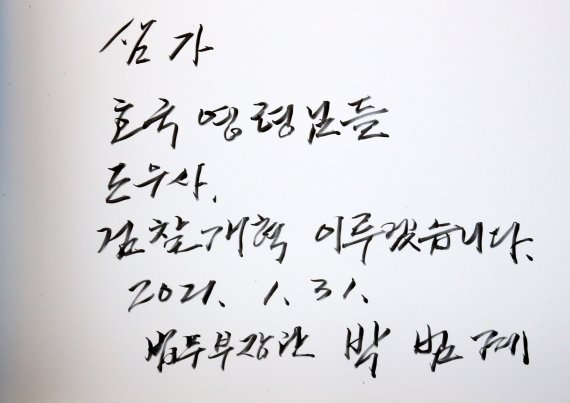 삼가
호국영령님들
도우사,
검찰개혁 이루겠습니다.
2021. 1. 31.
법무부장관 박범계